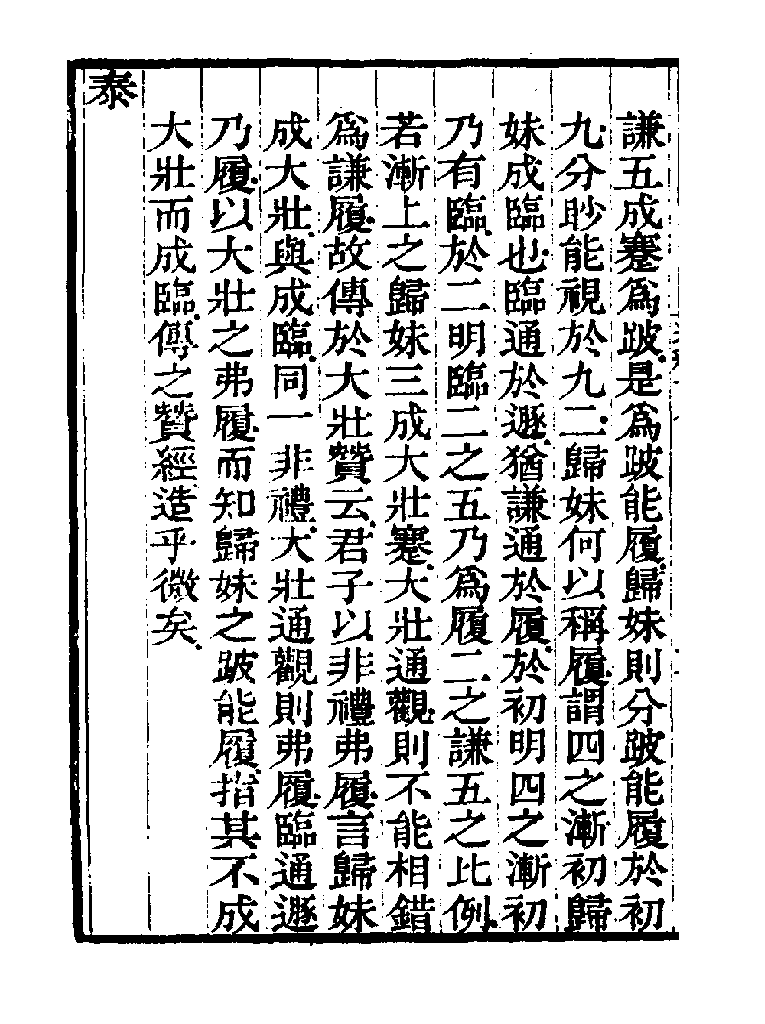 謙五成蹇爲跛是爲跛能履歸妹則分跛能履於初
九分眇能視於九二歸妹何以稱履謂四之漸初歸
妹成臨也臨通於遯猶謙通於履於初明四之漸初
乃有臨於二明臨二之五乃爲履二之謙五之比例
若漸上之歸妹三成大壯蹇大壯通觀則不能相錯
爲謙履故傳於大壯贊云君子以非禮弗履言歸妹
成大壯與成臨同一非禮大壯通觀則弗履臨通遯
乃履以大壯之弗履而知歸妹之跛能履指其不成
大壯而成臨傳之贊經造乎微矣
泰